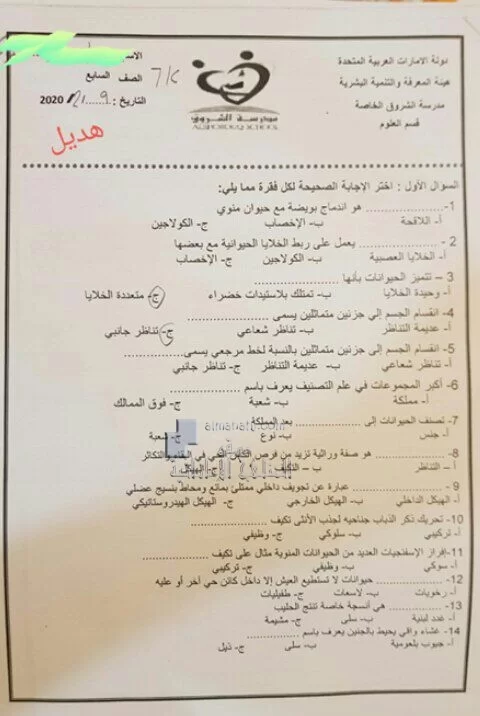 دولة الامارات العربية المتحدة
هيئة المعرفة والتنمية البشرية
مدرسة الشروق الخاصة
قسم العلوم
مدرسة الشروق
ALSHOROOQ SCHOOL
الصف السابع 7/
التاريخ : 9....../2/ 2020
هديل
السوال الأول : اختر الإجابة الصحيحة لكل فقرة مما يلي:
1- .................. هو اندماج بويضة مع حيوان منوي
أ- اللاقحة ب- الإخصاب ج- الكولاجين
2 - .................. يعمل على ربط الخلايا الحيوانية مع بعضها
أ- الخلايا العصبية ب- الكولاجين ج- الإخصاب
3 – تتميز الحيوانات بأنها ..................
أ- وحيدة الخلايا ب- تمتلك بلاستيدات خضراء ج- متعددة الخلايا
4- انقسام الجسم إلي جزئين متماثلين يسمى ..................
أ- عديمة التناظر ب- تناظر شعاعي ج- تناظر جانبي
5- انقسام الجسم إلى جزئين متماثلين بالنسبة لخط مرجعي يسمى..................
أ- تناظر شعاعي ب- عديمة التناظر ج- تناظر جانبي
6- أكبر المجموعات في علم التصنيف يعرف باسم ..................
أ- مملكة ب- شعبة ج- فوق الممالك
7- تصنف الحيوانات إلى .................. بعد المملكة
أ- جنس ب- نوع ج- شعبة
almanahj.com
8- .................. هو صفة وراثية تزيد من فرص الكائن الحي في البقاء والتكاثر
أ – التناظر ب – التكيف ج- الهيكل
9 - .................. عبارة عن تجويف داخلي ممتلئ بمائع ومحاط بنسيج عضلي
أ- الهيكل الداخلي ب- الهيكل الخارجي ج- الهيكل الهيدروستاتيكي
10- تحريك ذكر الذباب جناحيه لجذب الأنثى تكيف ..................
أ- تركيبي ب- سلوكي ج- وظيفي
11-إفراز الإسفنجيات العديد من الحيوانات المنوية مثال على تكيف ..................
أ- سوكي ب- وظيفي ج- تركيبي
12- .................. حيوانات لا تستطيع العيش إلا داخل كائن حي آخر أو عليه
أ- رخويات ب- لاسعات ج- طفيليات
13- .................. هي أنسجة خاصة تنتج الحليب
أ- غدد لبنية ب- سلى ج- مشيمة
14- غشاء واقي يحيط بالجنين يعرف باسم ..................
أ- جيوب بلعومية ب- سلى ج- ذيل